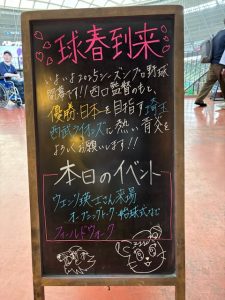 球春到来
いよいよ2025シーズンプロ野球
開幕です!!西口監督のもと、
優勝・日本一を目指す埼玉
西武ライオンズに熱い声援を
よろしくお願いします!!
本日のイベント
ウエンツ瑛士さん来場
オープニングトーク・始球式など
フィールドウォーク